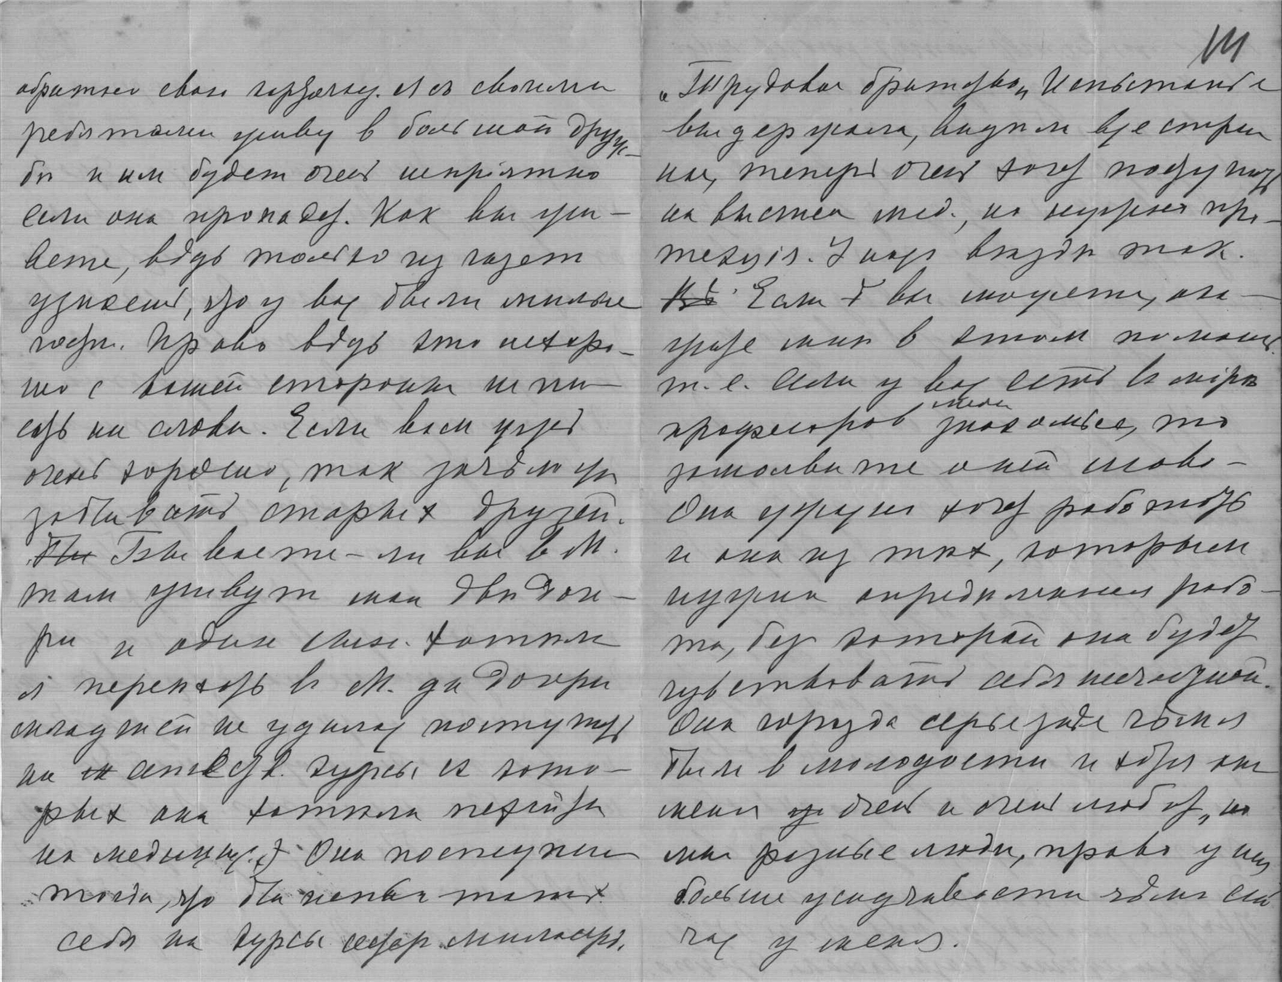 обратно свою карточку. Я с своими
ребятами живу в большой друж-
бе и им будет очень неприятно
если она пропадет. Как вы жи-
вете, ведь только из газет
узнаешь, что у вас были милые
гости. Право ведь это нехоро-
шо с вашей стороны не пи-
сать ни слова. Если вам живет
очень хорошо, так зачѣм же
забывать старых друзей.
Бываете-ли вы в М.
там живут мои две доче-
ри и один сын. Хотела
я переехать в М. да дочери
младшей не удалось поступить
на курсы с кото-
рых она хотела перейти
на медицину. Она поступила
тогда, что бы испытать
себя на курсы сестер милосерд.
111
„Трудовое братство„ Испытание
выдержала, видела все стра
ны, теперь очень хочет поступить
на высшие мед., но нужна про-
текция. У нас везде так.
Если б вы можете, ока-
жите мне в этом помощь.
т. е. если у вас есть в мире
профессоров знакомые, то
замолвите о ней слово-
Она ужасно хочет работать
и она из тех, которым
нужна определенная рабо-
та, без которой она будет
чувствовать себя несчастной.
Она гораздо серьезнее чѣм я
были в молодости и хотя она
меня очень и очень любит, но
мы разные люди, право у них
больше усидчивости чѣм сей
час у меня.